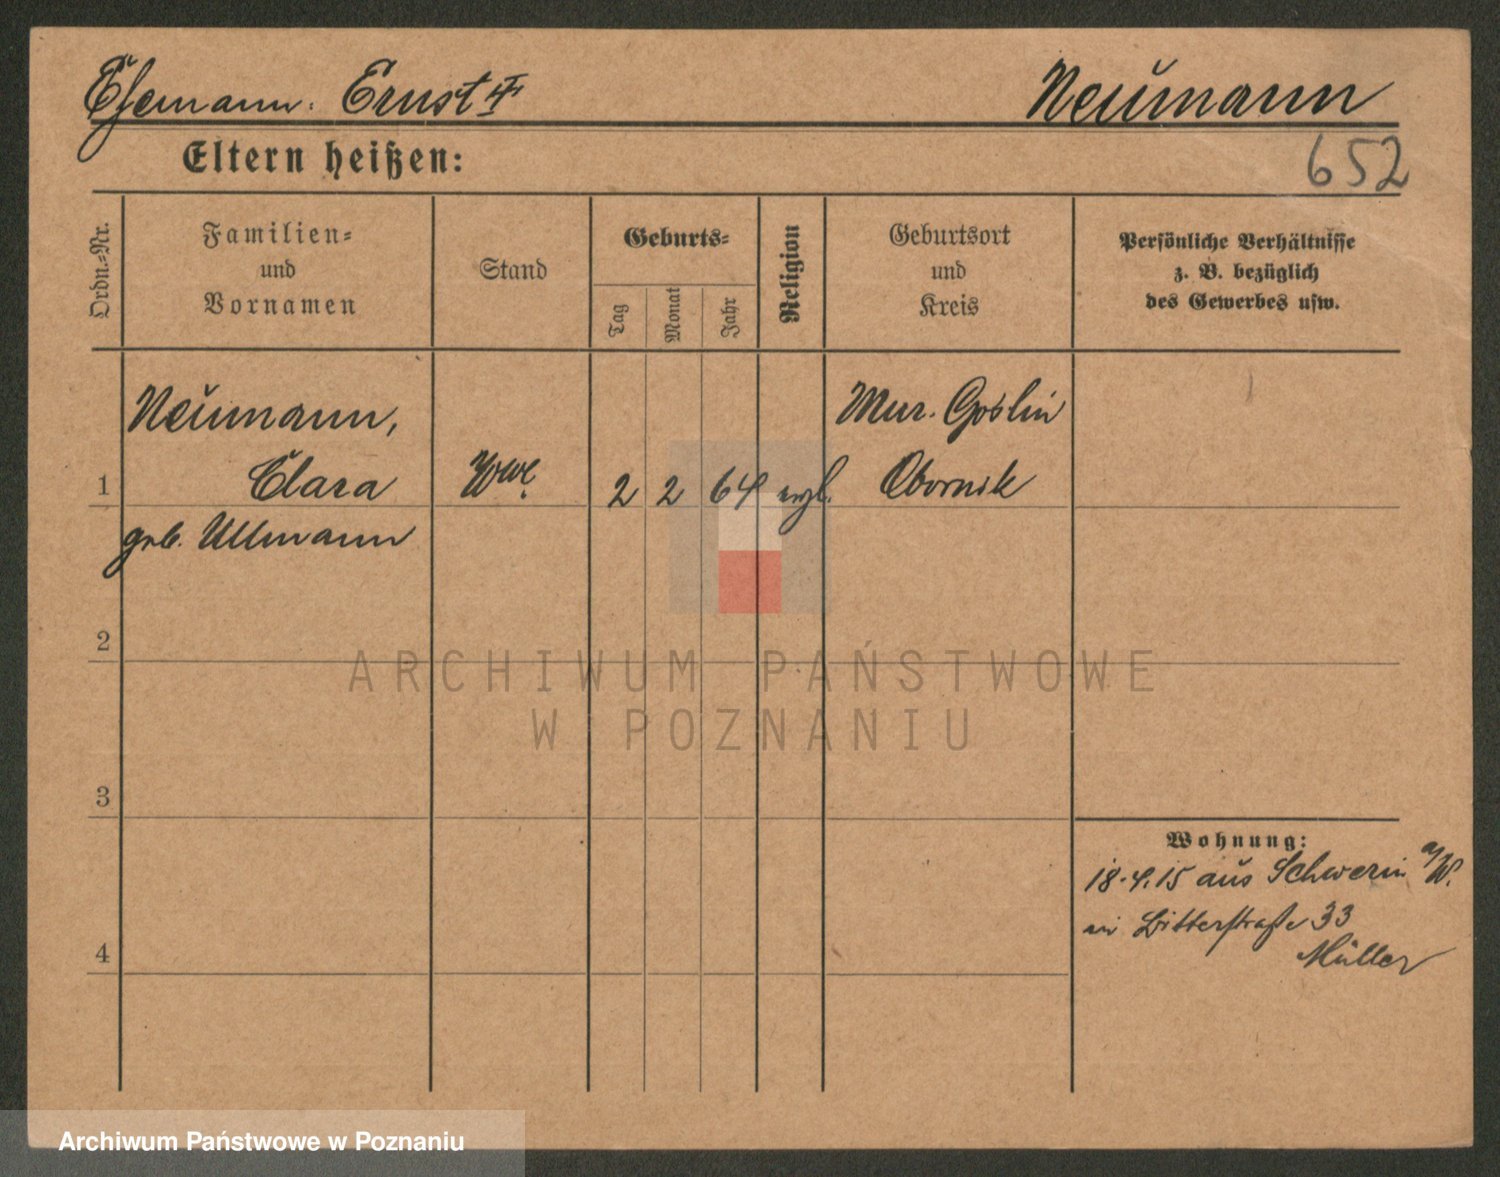 Ehemann. Ernst † Neumann
Eltern heißen:
652
Ordn.-Nr.
Familien-
und
Vornamen
Stand
Geburts-
Tag
Monat
Jahr
Religion
Geburtsort
und
Kreis
Persönliche Verhältnisse
z. B. bezüglich
des Gewerbes usw.
Neumann, Mur. Goslin
1 Clara Wwe 2 2 64 evgl. Obornik
geb. Ullmann
2
ARCHIWUM PAŃSTWOWE
W POZNANIU
3
Wohnung:
18.4.15 aus Schwerin a/W.
in Bitterstraße 33
Müller
4
Archiwum Państwowe w Poznaniu